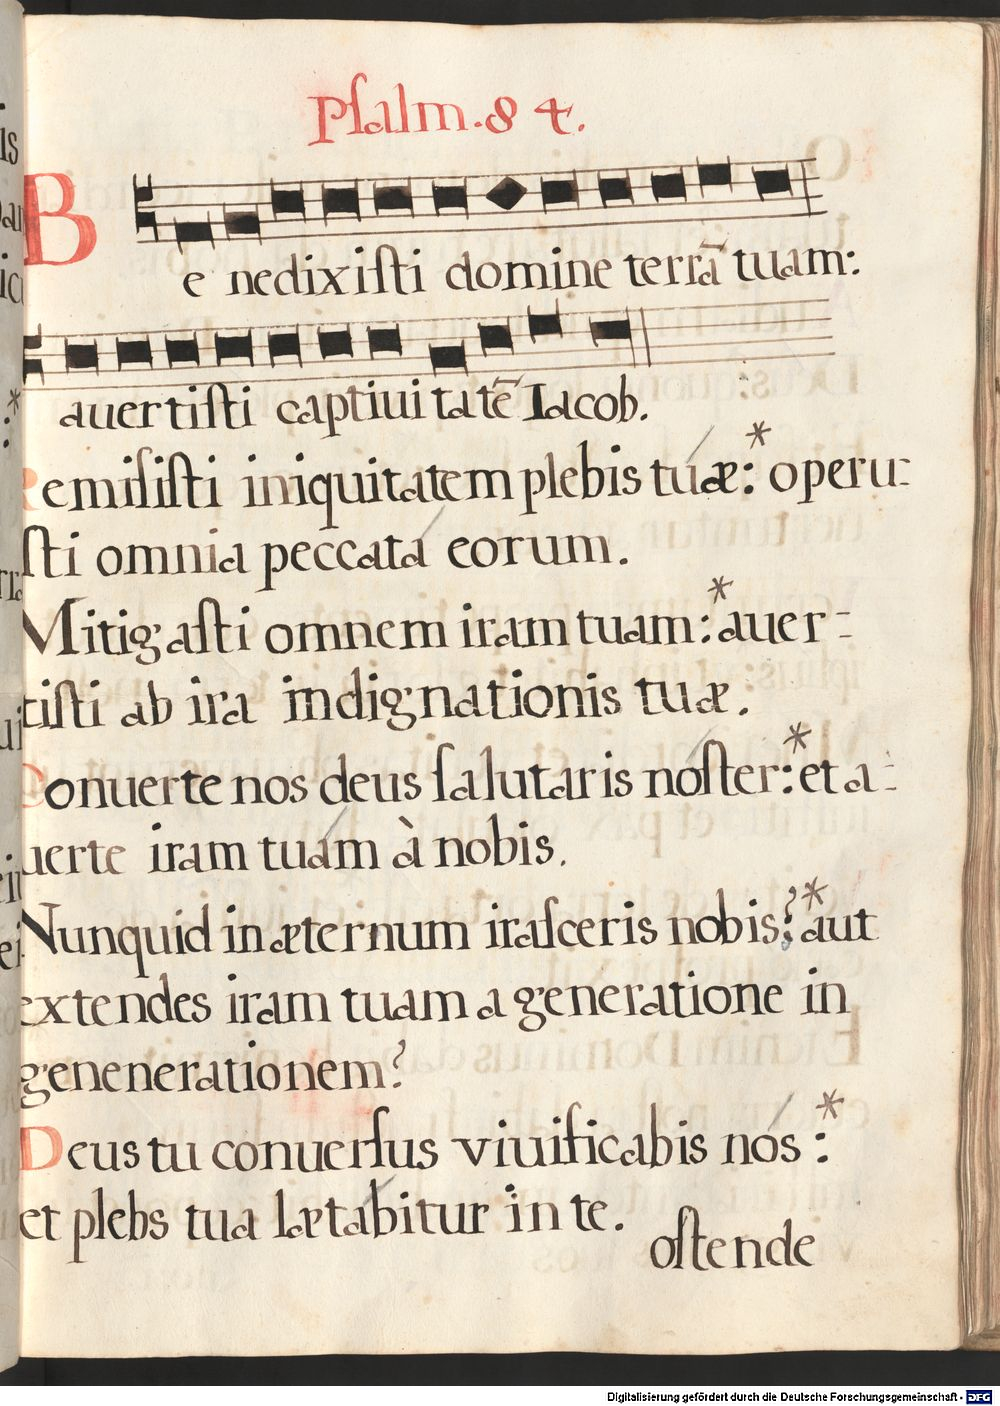 Psalm. 84.
B
e nedixisti domine terrā tuam:
auertisti captiuitatē Iacob.
Remisisti iniquitatem plebis tuæ:* operu-
sti omnia peccata eorum.
Mitigasti omnem iram tuam:* auer-
tisti ab ira indignationis tuæ.
Conuerte nos deus salutaris noster:* et a-
uerte iram tuam à nobis.
Nunquid in æternum irasceris nobis?* aut
extendes iram tuam a generatione in
genenerationem?
Deus tu conuersus viuificabis nos:*
et plebs tua lætabitur in te.
ostende
Digitalisierung gefördert durch die Deutsche Forschungsgemeinschaft - DFG